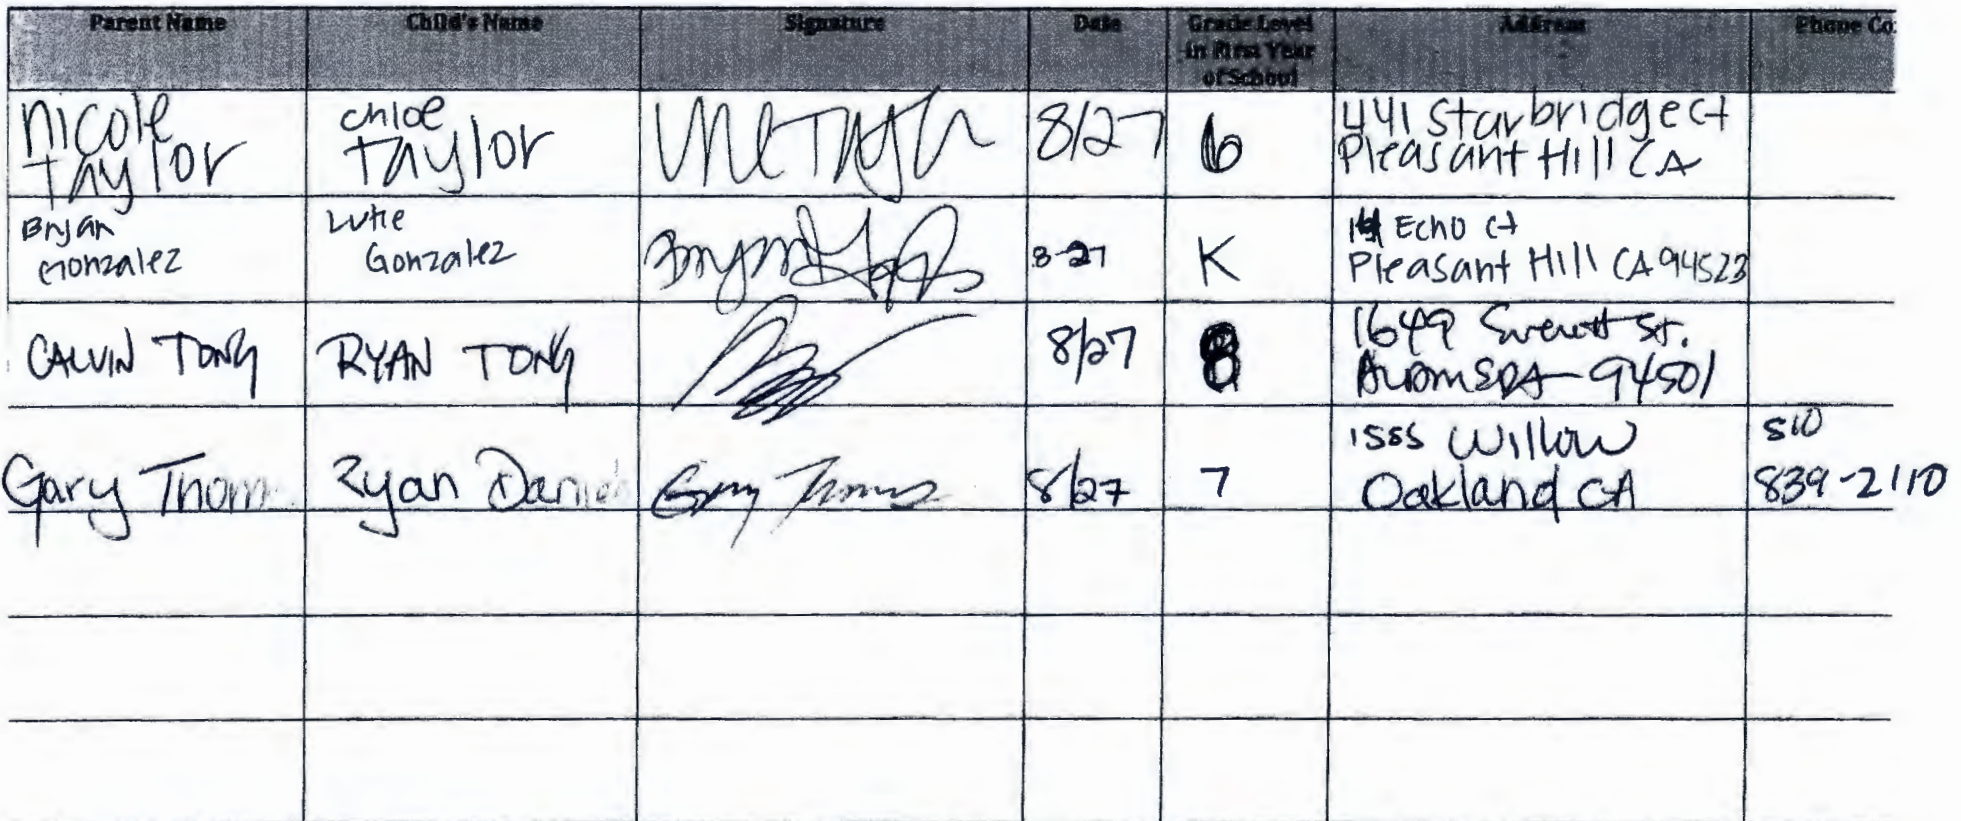 Parent Name Child's Name Signature Date Grade Level in First Year of School Address Phone Co
Nicole Taylor Chloe Taylor 8/27 6 441 Starbridge Ct Pleasant Hill CA
Bryan Gonzalez Luke Gonzalez 8-27 K Echo Ct Pleasant Hill CA 94523
CALVIN TONG RYAN TONG 8/27 8 1649 St. 94501
Gary Thom Ryan Danie Gary Thomas 8/27 7 1555 Willow Oakland CA 510 839-2110